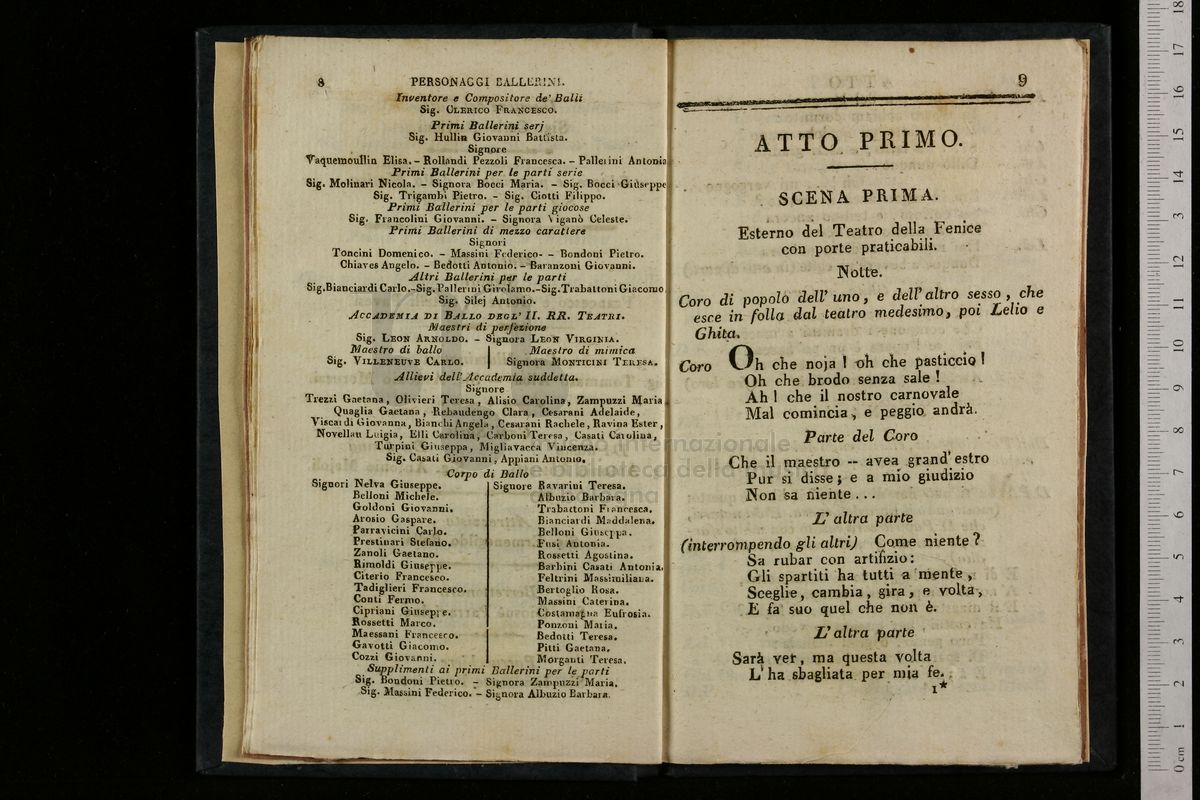 8 PERSONAGGI BALLERINI.
Inventore e Compositore de' Balli
Sig. CLERICO FRANCESCO.
Primi Ballerini serj
Sig. Hullin Giovanni Battista.
Signore
Vaquemoullin Elisa. - Rollandi Pezzoli Francesca. - Pallerini Antonia
Primi Ballerini per le parti serie
Sig. Molinari Nicola. - Signora Bocci Maria. - Sig. Bocci Giuseppe
Sig. Trigambi Pietro. - Sig. Ciotti Filippo.
Primi Ballerini per le parti giocose
Sig. Francolini Giovanni. - Signora Viganò Celeste.
Primi Ballerini di mezzo carattere
Signori
Toncini Domenico. - Massini Federico- - Bondoni Pietro.
Chiaves Angelo. - Bedotti Antonio. - Baranzoni Giovanni.
Altri Ballerini per le parti
Sig. Bianciardi Carlo.-Sig. Pallerini Girolamo.-Sig. Trabattoni Giacomo
Sig. Silej Antonio.
ACCADEMIA DI BALLO DEGL' II. RR. TEATRI.
Maestri di perfezione
Sig. LEON ARNOLDO. - Signora LEON VIRGINIA.
Maestro di ballo | Maestro di mimica
Sig. VILLENEUVE CARLO. | Signora MONTICINI TERESA.
Allievi dell'Accademia suddetta.
Signore
Trezzi Gaetana, Olivieri Teresa, Alisio Carolina, Zampuzzi Maria
Quaglia Gaetana, Rebaudengo Clara, Cesarani Adelaide,
Viscardi Giovanna, Bianchi Angela, Cesarani Rachele, Ravina Ester,
Novellau Luigia, Elli Carolina, Carboni Teresa, Casati Carolina,
Turpini Giuseppa, Migliavacca Vincenza.
Sig. Casati Giovanni, Appiani Antonio.
Corpo di Ballo
Signori Nelva Giuseppe. | Signore Ravarini Teresa.
Belloni Michele. | Albuzio Barbara.
Goldoni Giovanni. | Trabattoni Francesca.
Arosio Gaspare. | Bianciardi Maddalena.
Parravicini Carlo. | Belloni Giuseppa.
Prestinari Stefano. | Fusi Antonia.
Zanoli Gaetano. | Rossetti Agostina.
Rimoldi Giuseppe. | Barbini Casati Antonia.
Citerio Francesco. | Feltrini Massimiliana.
Tadiglieri Francesco. | Bertoglio Rosa.
Conti Fermo. | Massini Caterina.
Cipriani Giuseppe. | Costamagna Eufrosia.
Rossetti Marco. | Ponzoni Maria.
Maessani Francesco. | Bedotti Teresa.
Gavotti Giacomo. | Pitti Gaetana.
Cozzi Giovanni. | Morganti Teresa.
Supplimenti ai primi Ballerini per le parti
Sig. Bondoni Pietro. - Signora Zampuzzi Maria.
Sig. Massini Federico. - Signora Albuzio Barbara.
9
ATTO PRIMO.
SCENA PRIMA.
Esterno del Teatro della Fenice
con porte praticabili.
Notte.
Coro di popolo dell' uno, e dell' altro sesso, che
esce in folla dal teatro medesimo, poi Lelio e
Ghita.
Coro Oh che noja! oh che pasticcio!
Oh che brodo senza sale!
Ah! che il nostro carnovale
Mal comincia, e peggio andrà.
Parte del Coro
Che il maestro -- avea grand' estro
Pur si disse; e a mio giudizio
Non sa niente...
L' altra parte
(interrompendo gli altri) Come niente?
Sa rubar con artifizio:
Gli spartiti ha tutti a mente,
Sceglie, cambia, gira, e volta,
E fa suo quel che non è.
L' altra parte
Sarà ver, ma questa volta
L' ha sbagliata per mia fe.
1*
internazionale
e biblioteca della
0 cm 1 2 3 4 5 6 7 8 9 10 11 12 13 14 15 16 17 18